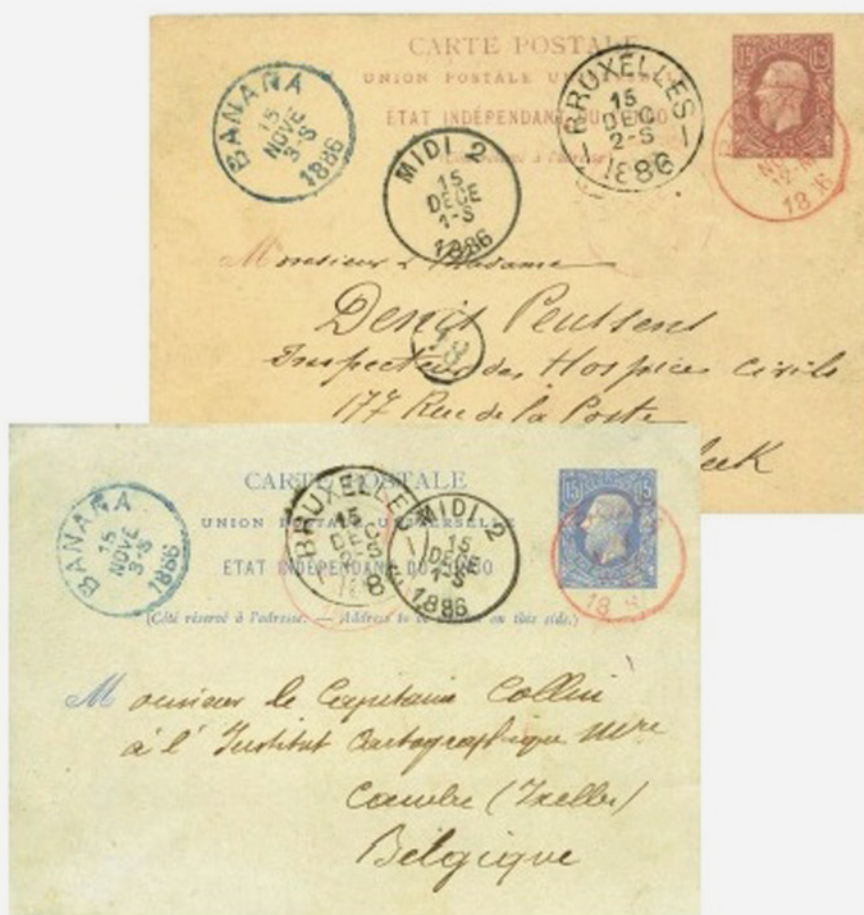 CARTE POSTALE
15 15
UNION POSTALE
ÉTAT INDÉPENDANT DU CONGO
BANANA
15
NOVE
3-S
1886
BRUXELLES
15
DEC
2-S
1886
MIDI 2
15
DECE
1-S
1886
Monsieur & Madame
Denis Peutsens
Inspecteur des Hospices Civils
177 Rue de la Poste
CARTE POSTALE
15 15
UNION POSTALE UNIVERSELLE
ÉTAT INDÉPENDANT DU CONGO
(Côté réservé à l'adresse. — Address to be on this side.)
BANANA
15
NOVE
3-S
1886
BRUXELLES
15
MIDI 2
15
DECE
1-S
1886
Monsieur le Capitaine Collin
à l'Institut Cartographique Mre
Cambre (Ixelles)
Belgique